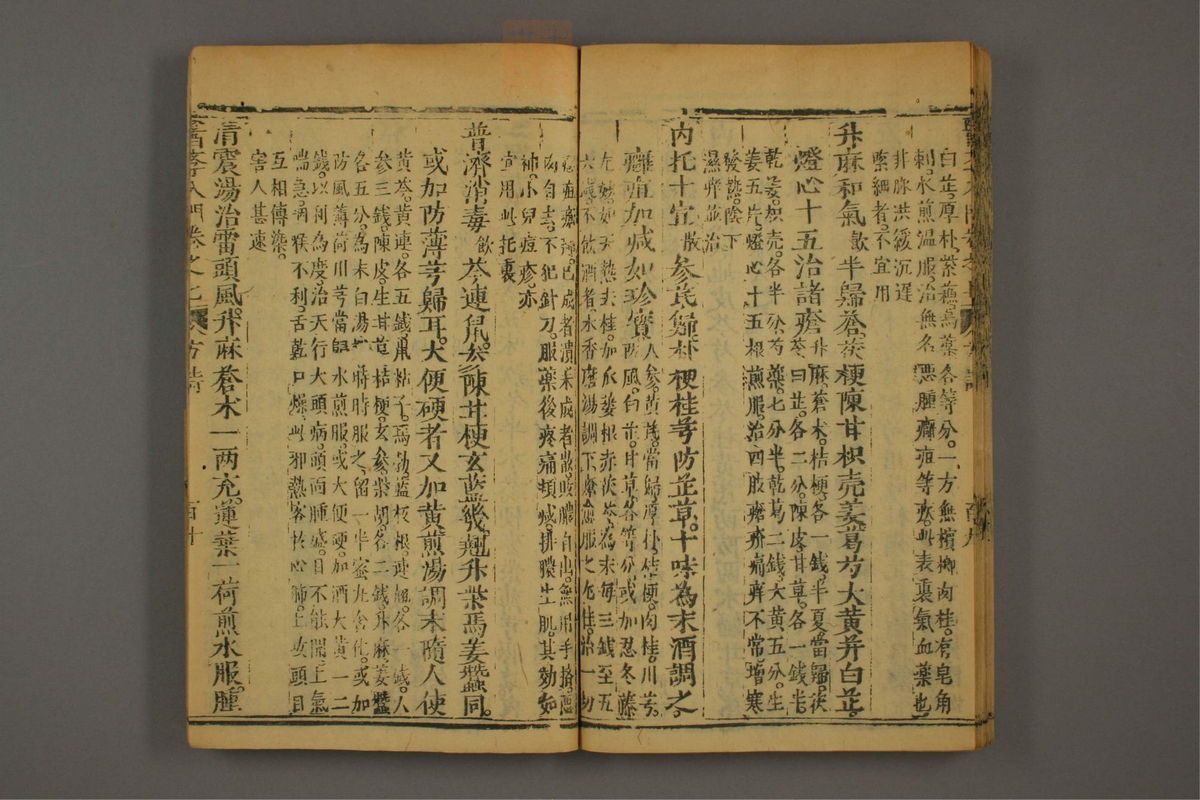 白芷厚朴紫蘇烏藥各等分。一方無檳榔肉桂。有皂角
刺。水煎溫服治無名惡腫癰疽等瘡。此表裏氣血藥也
非脉洪緩沉遲
緊細者。不宜用
升麻和氣飲半歸蒼茯梗陳甘枳壳姜葛芍大黃并白芷。
燈心十五治諸瘡升麻蒼朮。桔梗。各一錢。半夏當歸。茯
苓白芷。各二分。陳皮甘草。各一錢半。
乾姜。枳壳。各半分芍藥。七分半。乾葛二錢。大黃五分。生
姜五片。燈心十五根煎服。治四肢瘡疥痛痒不常。增寒
發熱。陰下
濕痒並治
內托十宣散參芪歸朴梗桂芎防芷草。十味為末酒調之。
癰疽加減如珍寶人參。黃芪。當歸。厚朴。桔梗。肉桂。川芎。
防風。白芷。甘草。各等分或加忍冬藤
尤妙。如天熱去桂。加瓜蔞根赤茯苓。為末每三錢至五
六錢不飲酒者。木香磨湯調下愈服之尤佳。治一切
已成者潰未成者散。敗膿自出。無用手擠。惡
肉自去。不犯針刀。服藥後疼痛頓減。排膿生肌。其効如
神。小兒痘疹。亦
宜用此托裏
普濟消毒飲芩連鼠。參陳甘梗玄藍幾。翹升柴馬姜蠶同。
或加防薄芎歸耳。大便硬者又加黃煎湯調末隨人使
黃芩。黃連。各五錢鼠粘子。馬勃藍板根。連翹。各一錢。人
參三錢。陳皮。生甘草桔梗。玄參柴胡。各二錢。升麻姜蠶
各五分。為末白湯時時服之。留一半蜜丸含化。或加
防風薄荷川芎當歸水煎服。或大便硬。加酒大黃一二
錢。以利為度。治天行大頭病。頭面腫盛。目不能開上氣
喘急。病喉不利。舌乾口燥。此邪熱客於心肺。上攻頭目
互相傳染。
害人甚速
清震湯治雷頭風。升麻蒼朮一兩充。蓮葉一荷煎水服。腫
醫學入門卷之七 方詩 百十